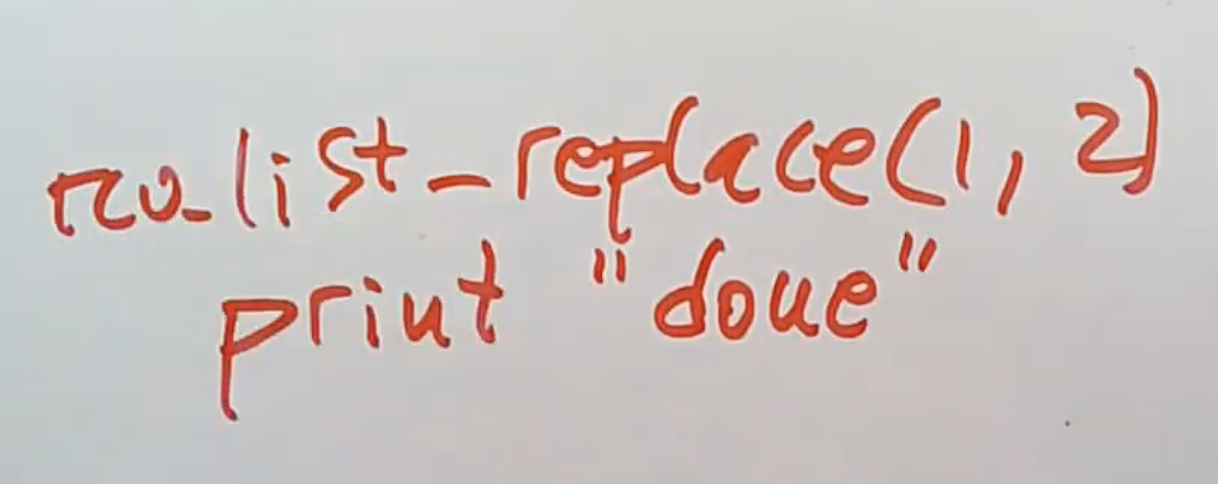 rcu_list_replace(1, 2)
print "done"